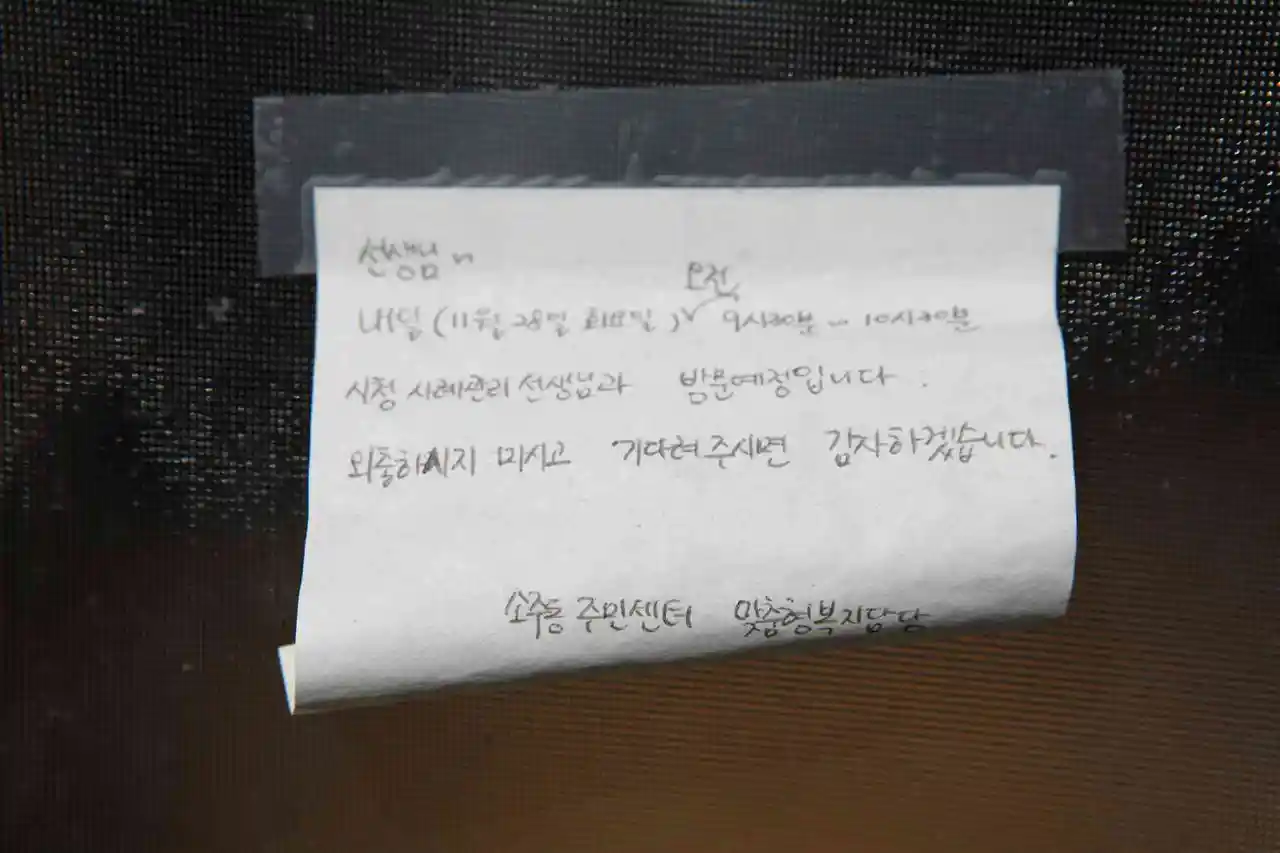 선생님~
오전
내일 (11월 28일 화요일) 9시30분 ~ 10시30분
시청 사례관리 선생님과 방문예정입니다.
외출하시지 마시고 기다려주시면 감사하겠습니다.
소주동 주민센터 맞춤형복지담당